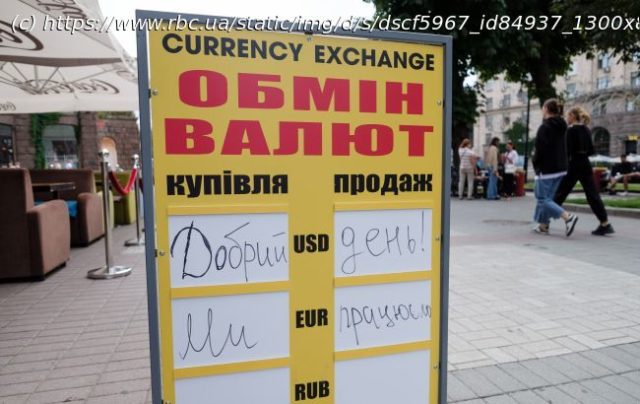 (c) https://www.rbc.ua/static/img/d/s/dscf5967_id84937_1300x
CURRENCY EXCHANGE
ОБМІН
ВАЛЮТ
купівля продаж
Добрий USD день!
Ми EUR працюємо
RUB